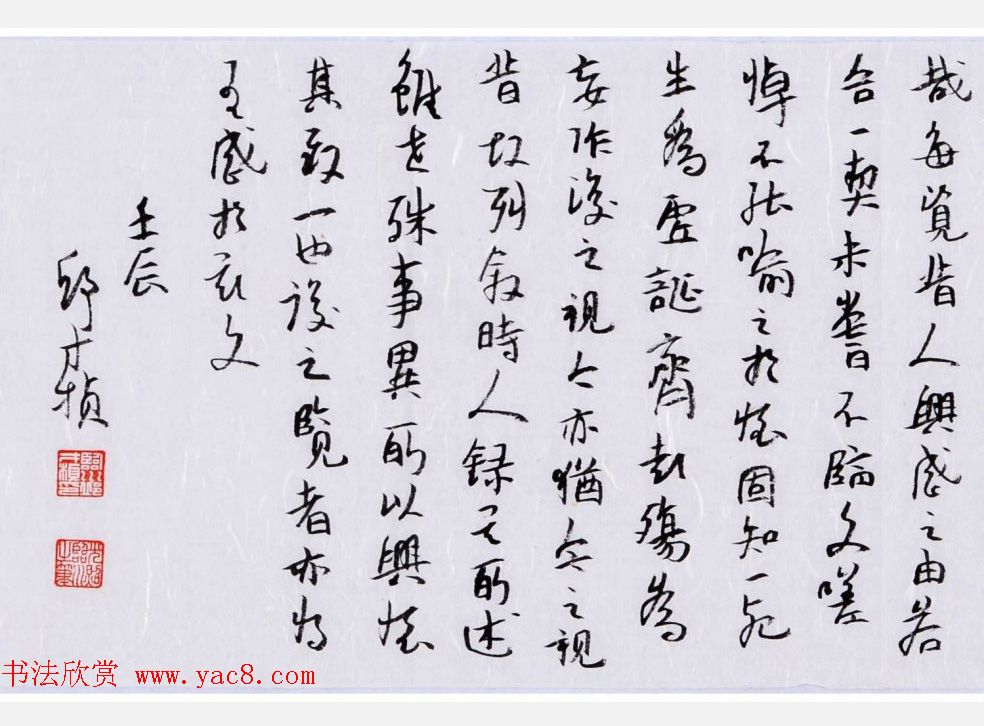 哉每覽昔人興感之由若
合一契未嘗不臨文嗟
悼不能喻之於懷固知一死
生為虛誕齊彭殤為
妄作後之視今亦猶今之視
昔故列敘時人錄其所述
雖世殊事異所以興懷
其致一也後之覽者亦將
有感於斯文
壬辰
邱才楨
书法欣赏 www.yac8.com